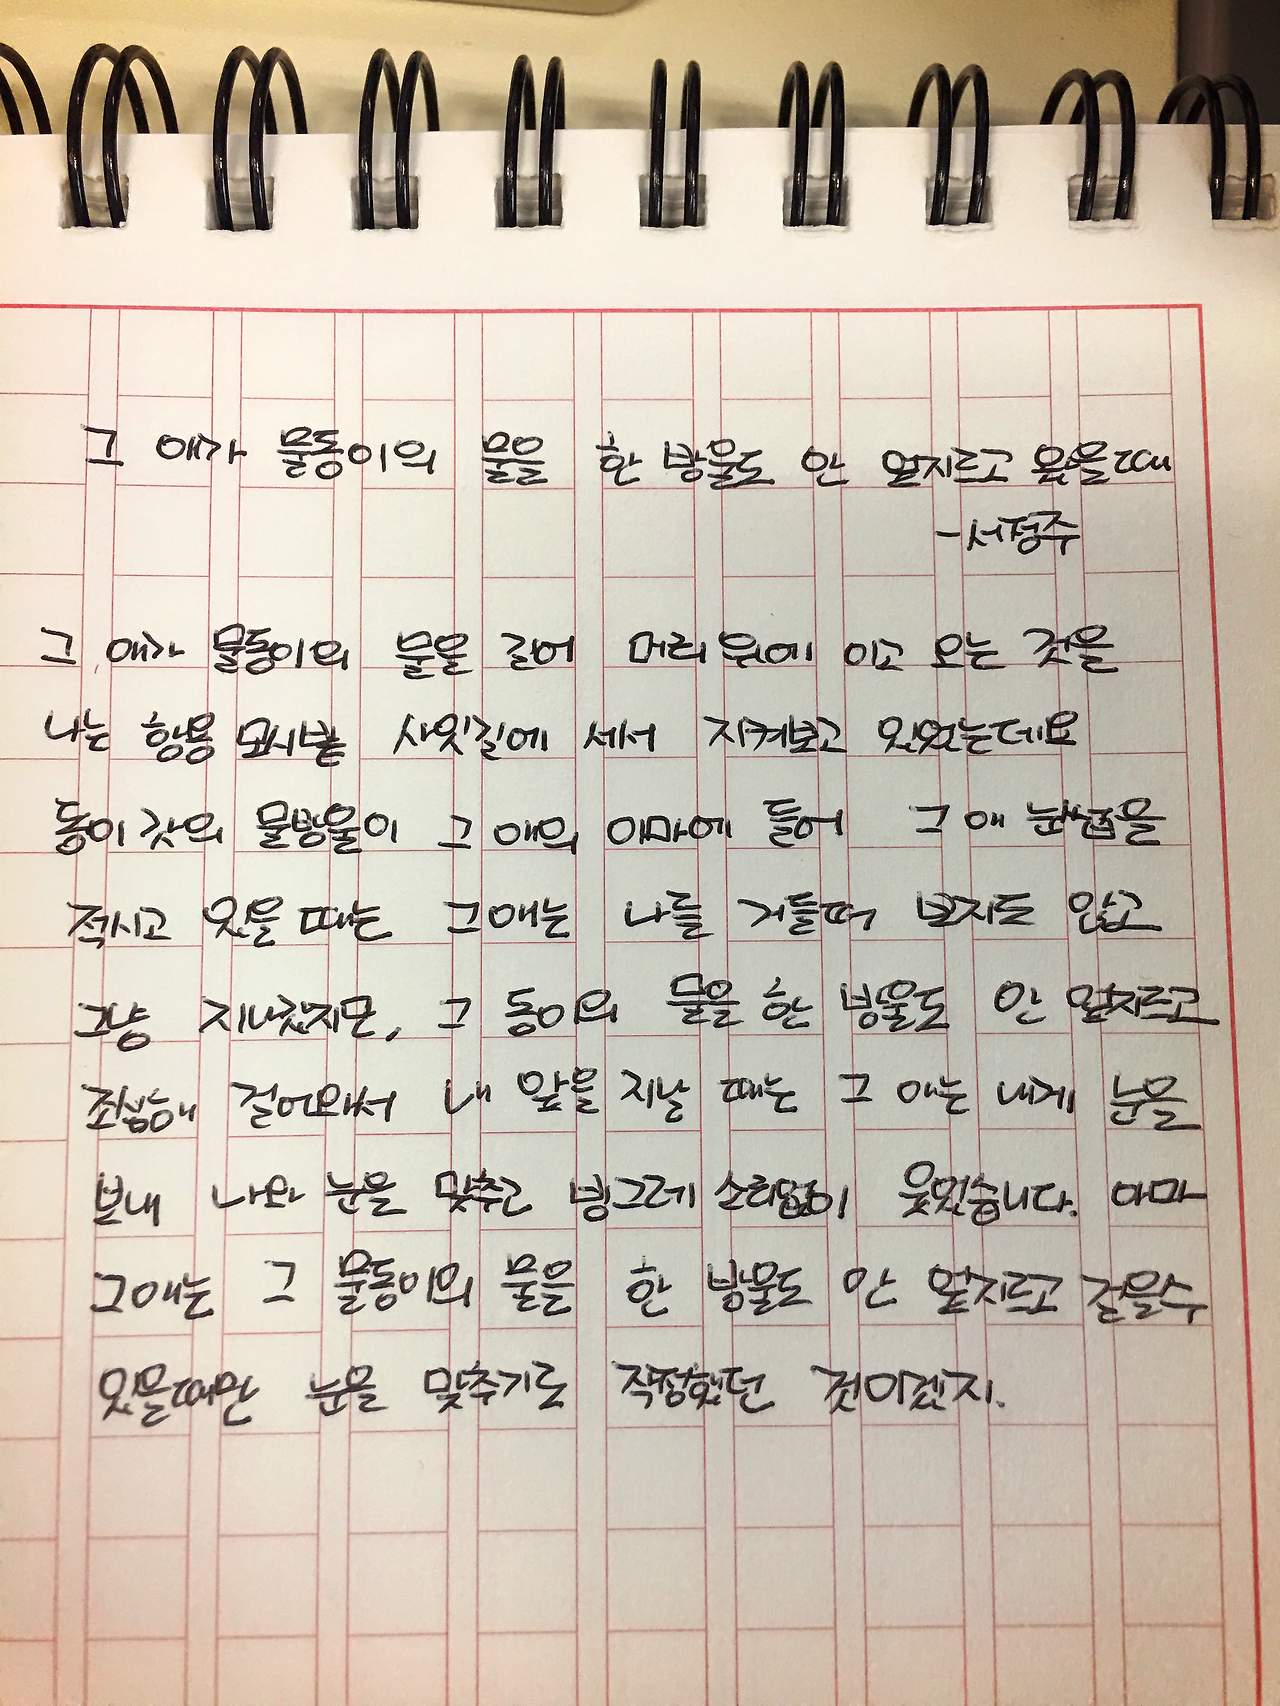 그 애가 물동이의 물을 한 방울도 안 엎지르고 왔을때
-서정주
그 애가 물동이의 물을 길어 머리 위에 이고 오는 것을
나는 항용 모시밭 사잇길에 서서 지켜보고 있었는데요
동이 갓의 물방울이 그 애의 이마에 들어 그 애 눈썹을
적시고 있을 때는 그애는 나를 거들떠 보지도 않고
그냥 지나갔지만, 그 동이의 물을 한 방울도 안 엎지르고
조심해 걸어와서 내 앞을 지날 때는 그 애는 내게 눈을
보내 나와 눈을 맞추고 빙그레 소리없이 웃었습니다. 아마
그애는 그 물동이의 물을 한 방울도 안 엎지르고 걸을수
있을때만 눈을 맞추기로 작정했던 것이겠지.